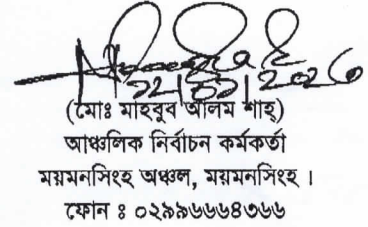 ২২/০১/২০২৬
(মোঃ মাহবুব আলম শাহ্)
আঞ্চলিক নির্বাচন কর্মকর্তা
ময়মনসিংহ অঞ্চল, ময়মনসিংহ ।
ফোন ঃ ০২৯৯৬৬৬৪৩৬৬